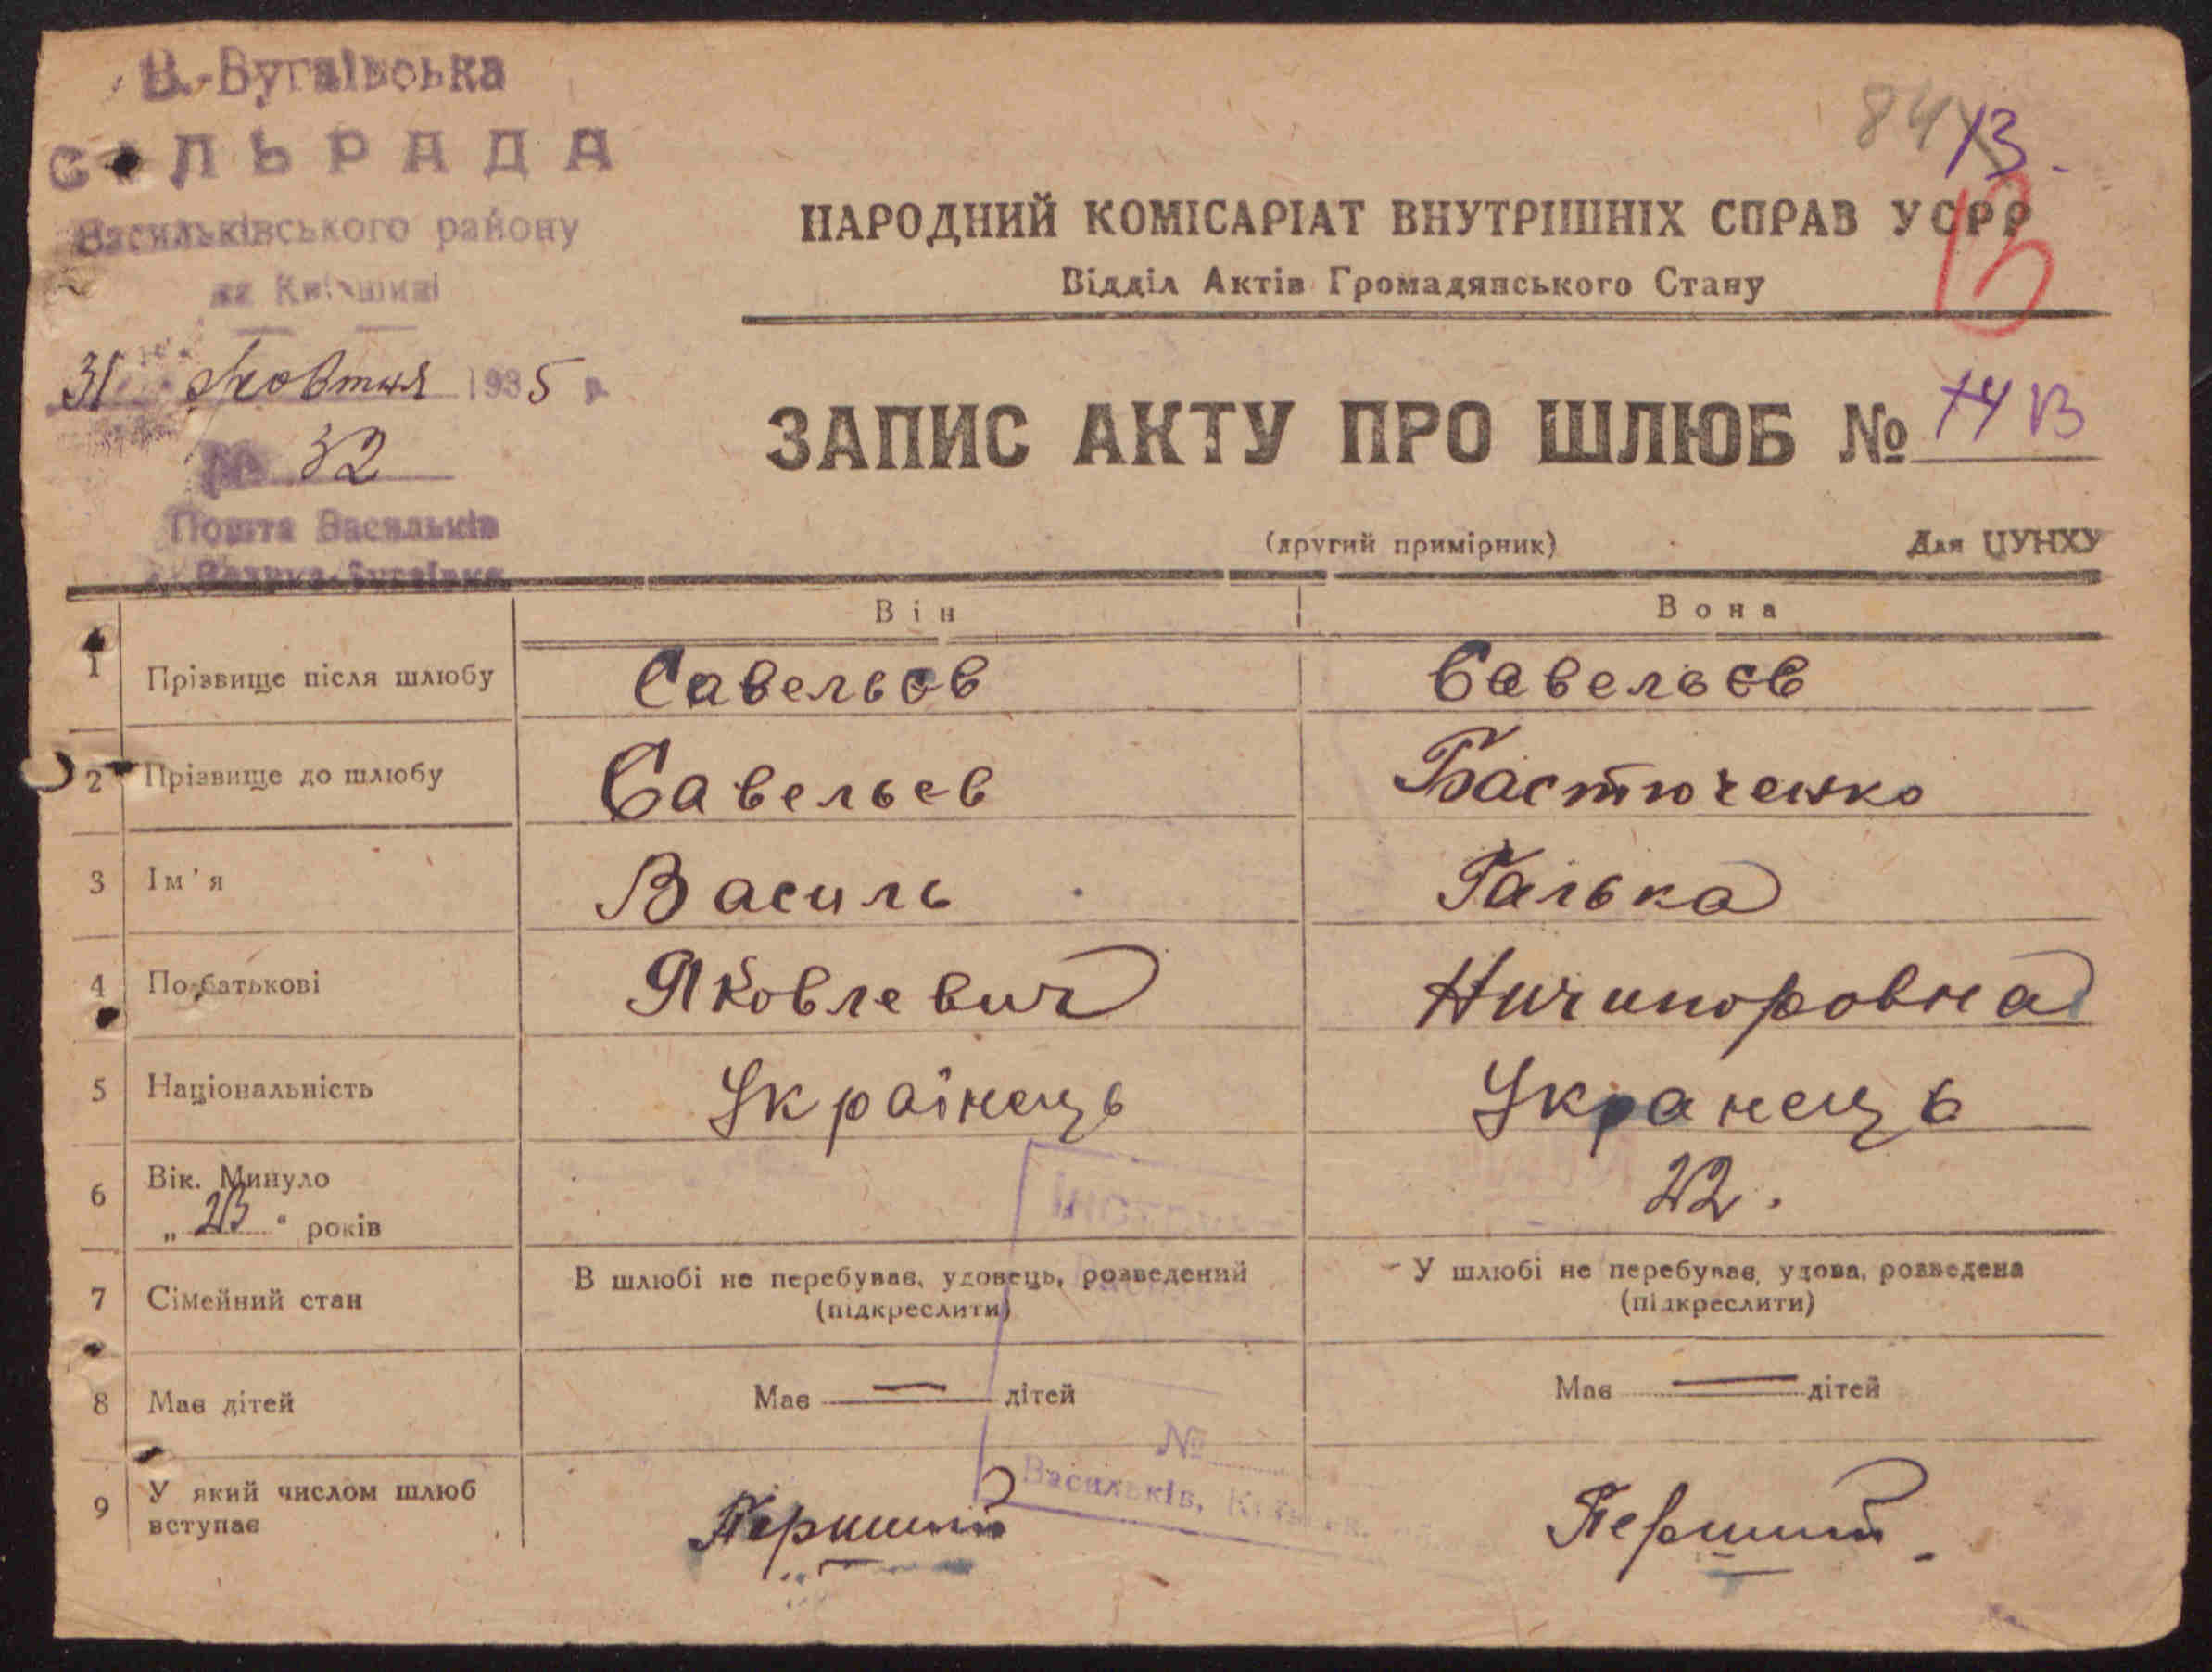 В.-Бугаївська
СІЛЬРАДА
Васильківського району
на Київщині
31 Жовтня 1935 р.
№ 32
Пошта Васильків
Велика-Бугаївка
84 13.
13
НАРОДНИЙ КОМІСАРІАТ ВНУТРІШНІХ СПРАВ УСРР
Відділ Актів Громадянського Стану
ЗАПИС АКТУ ПРО ШЛЮБ № 14 13
(другий примірник) Для ЦУНХУ
Він Вона
1 Прізвище після шлюбу Савельєв Савельєв
2 Прізвище до шлюбу Савельев Бастюченко
3 Ім'я Василь Галька
4 По-батькові Яковлевич Ничипоровна
5 Національність Українець Укранець
6 Вік. Минуло 22.
„ 23 " років
7 Сімейний стан В шлюбі не перебував, удовець, розведений (підкреслити) У шлюбі не перебував, удова, розведена (підкреслити)
8 Має дітей Має — дітей Має — дітей
№
Васильків,
9 У який числом шлюб вступає Перший Перший